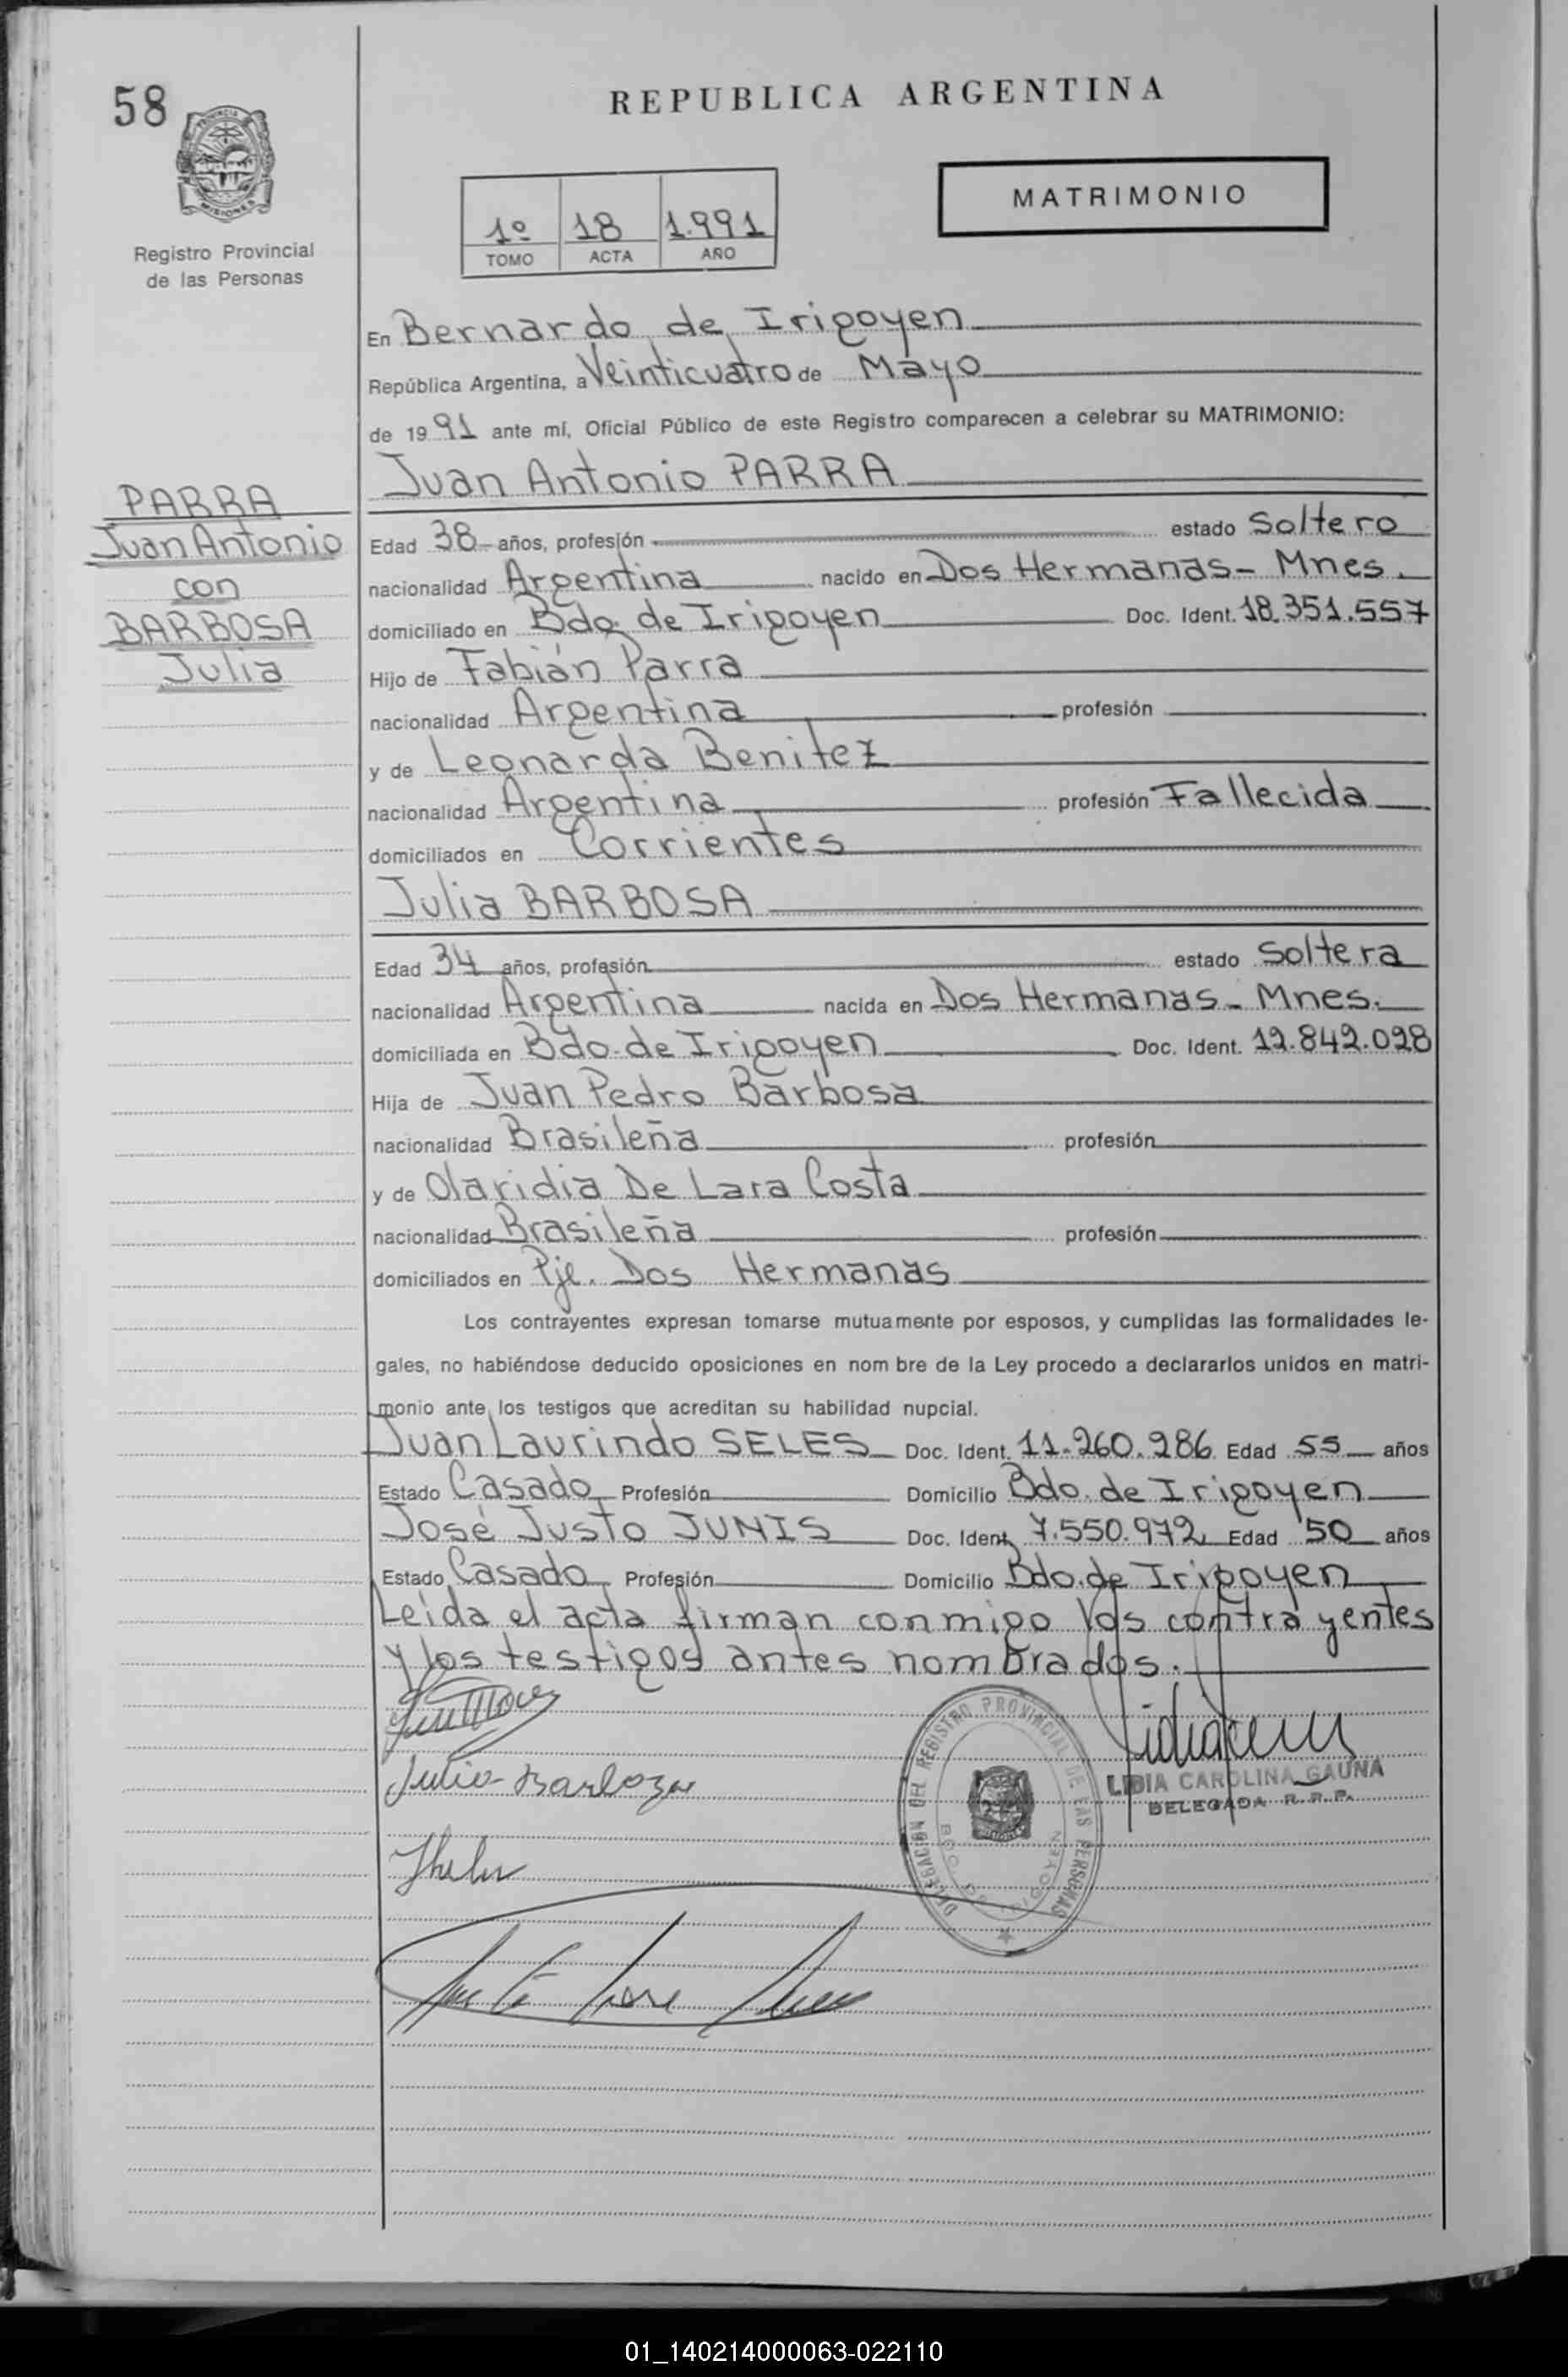 58
REPUBLICA ARGENTINA
MATRIMONIO
1º 18 1.991
TOMO ACTA AÑO
PROVINCIA
MISIONES
Registro Provincial
de las Personas
En Bernardo de Irigoyen
República Argentina, a Veinticuatro de Mayo
de 1991 ante mí, Oficial Público de este Registro comparecen a celebrar su MATRIMONIO:
Juan Antonio PARRA
PARRA
Juan Antonio
con
BARBOSA
Julia
Edad 38 años, profesión estado Soltero
nacionalidad Argentina nacido en Dos Hermanas - Mnes.
domiciliado en Bdo. de Irigoyen Doc. Ident. 18.351.557
Hijo de Fabián Parra
nacionalidad Argentina profesión
y de Leonarda Benitez
nacionalidad Argentina profesión Fallecida
domiciliados en Corrientes
Julia BARBOSA
Edad 34 años, profesión estado Soltera
nacionalidad Argentina nacida en Dos Hermanas - Mnes.
domiciliada en Bdo. de Irigoyen Doc. Ident. 12.842.028
Hija de Juan Pedro Barbosa
nacionalidad Brasileña profesión
y de Olaridia De Lara Costa
nacionalidad Brasileña profesión
domiciliados en Pje. Dos Hermanas
Los contrayentes expresan tomarse mutuamente por esposos, y cumplidas las formalidades le-
gales, no habiéndose deducido oposiciones en nom bre de la Ley procedo a declararlos unidos en matri-
monio ante los testigos que acreditan su habilidad nupcial.
Juan Laurindo SELES Doc. Ident. 11.260.286 Edad 55 años
Estado Casado Profesión Domicilio Bdo. de Irigoyen
José Justo JUNIS Doc. Ident. 7.550.972 Edad 50 años
Estado Casado Profesión Domicilio Bdo. de Irigoyen
Leída el acta firman conmigo los contrayentes
y los testigos antes nombrados.
Julia Barboza
DELEGACION DEL REGISTRO PROVINCIAL DE LAS PERSONAS
BDO. DE IRIGOYEN
LIDIA CAROLINA GAUNA
DELEGADA R. R. P.
01_140214000063-022110